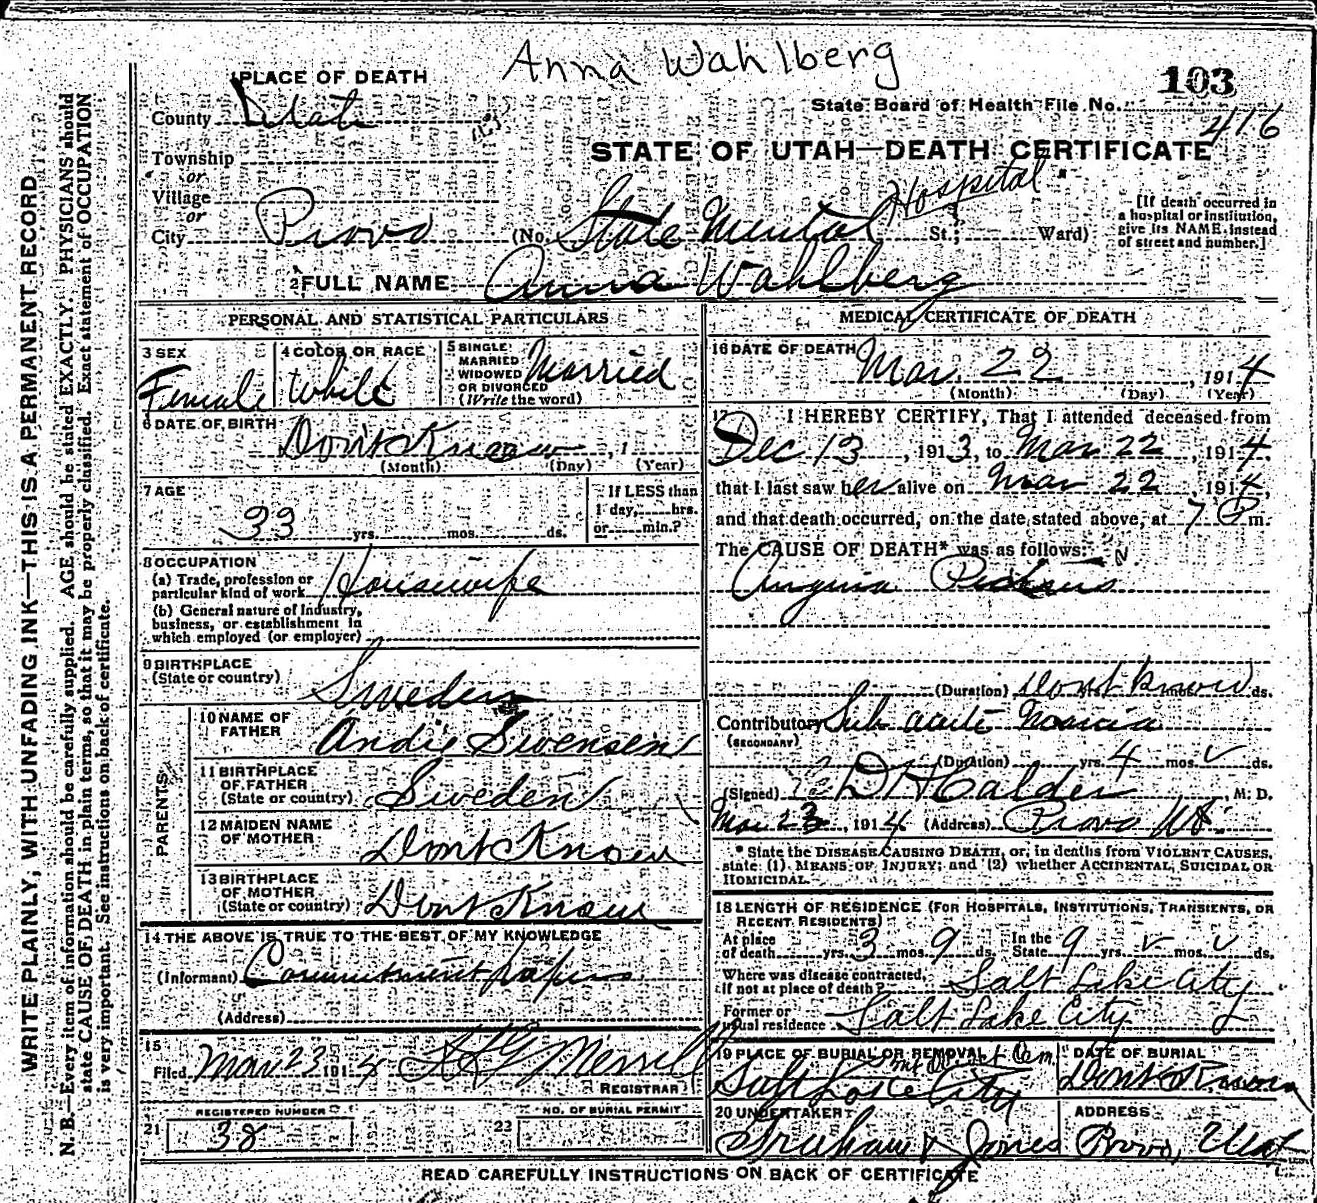 Anna Wahlberg
PLACE OF DEATH
103
County Utah
State Board of Health File No. 416
Township
or
STATE OF UTAH—DEATH CERTIFICATE
Village
or
City Provo (No. State Mental Hospital St.; Ward)
[If death occurred in a hospital or institution, give its NAME instead of street and number.]
2 FULL NAME Anna Wahlberg
PERSONAL AND STATISTICAL PARTICULARS
3 SEX
Female
4 COLOR OR RACE
White
5 SINGLE
MARRIED
WIDOWED
OR DIVORCED
(Write the word)
Married
6 DATE OF BIRTH
Dont Know, 1
(Month) (Day) (Year)
7 AGE
33 yrs. mos. ds.
If LESS than
1 day, hrs.
or min.?
8 OCCUPATION
(a) Trade, profession or
particular kind of work Housewife
(b) General nature of Industry,
business, or establishment in
which employed (or employer)
9 BIRTHPLACE
(State or country)
Sweden
PARENTS
10 NAME OF
FATHER
Andie Swensen
11 BIRTHPLACE
OF FATHER
(State or country) Sweden
12 MAIDEN NAME
OF MOTHER
Dont Know
13 BIRTHPLACE
OF MOTHER
(State or country) Dont Know
14 THE ABOVE IS TRUE TO THE BEST OF MY KNOWLEDGE
(Informant) Commitment papers
(Address)
15
Filed Mar 23 1914 Merrell
REGISTRAR
REGISTERED NUMBER
21 38
NO. OF BURIAL PERMIT
22
MEDICAL CERTIFICATE OF DEATH
16 DATE OF DEATH
Mar 22, 1914
(Month) (Day) (Year)
17 I HEREBY CERTIFY, That I attended deceased from
Dec 13, 1913, to Mar 22, 1914,
that I last saw her alive on Mar 22, 1914,
and that death occurred, on the date stated above, at 7 P m.
The CAUSE OF DEATH* was as follows:
Angina Pectoris
(Duration) Dont know ds.
Contributory Sub acute
(SECONDARY)
(Duration) yrs. 4 mos. ds.
(Signed) D H Calder, M. D.
Mar 23, 1914 (Address) Provo Ut.
* State the DISEASE CAUSING DEATH, or, in deaths from VIOLENT CAUSES,
state (1) MEANS OF INJURY; and (2) whether ACCIDENTAL, SUICIDAL OR
HOMICIDAL.
18 LENGTH OF RESIDENCE (FOR HOSPITALS, INSTITUTIONS, TRANSIENTS, OR
RECENT RESIDENTS)
At place
of death yrs. 3 mos. 9 ds. In the
State 9 yrs. mos. ds.
Where was disease contracted,
if not at place of death? Salt Lake City
Former or
usual residence Salt Lake City
19 PLACE OF BURIAL OR REMOVAL
Mt Olivet Cem
Salt Lake City
DATE OF BURIAL
Dont Know
20 UNDERTAKER
Graham & Jones
ADDRESS
Provo, Utah
READ CAREFULLY INSTRUCTIONS ON BACK OF CERTIFICATE
WRITE PLAINLY, WITH UNFADING INK—THIS IS A PERMANENT RECORD
N. B.—Every item of information should be carefully supplied. AGE should be stated EXACTLY. PHYSICIANS should
state CAUSE OF DEATH in plain terms, so that it may be properly classified. Exact statement of OCCUPATION
is very important. See instructions on back of certificate.